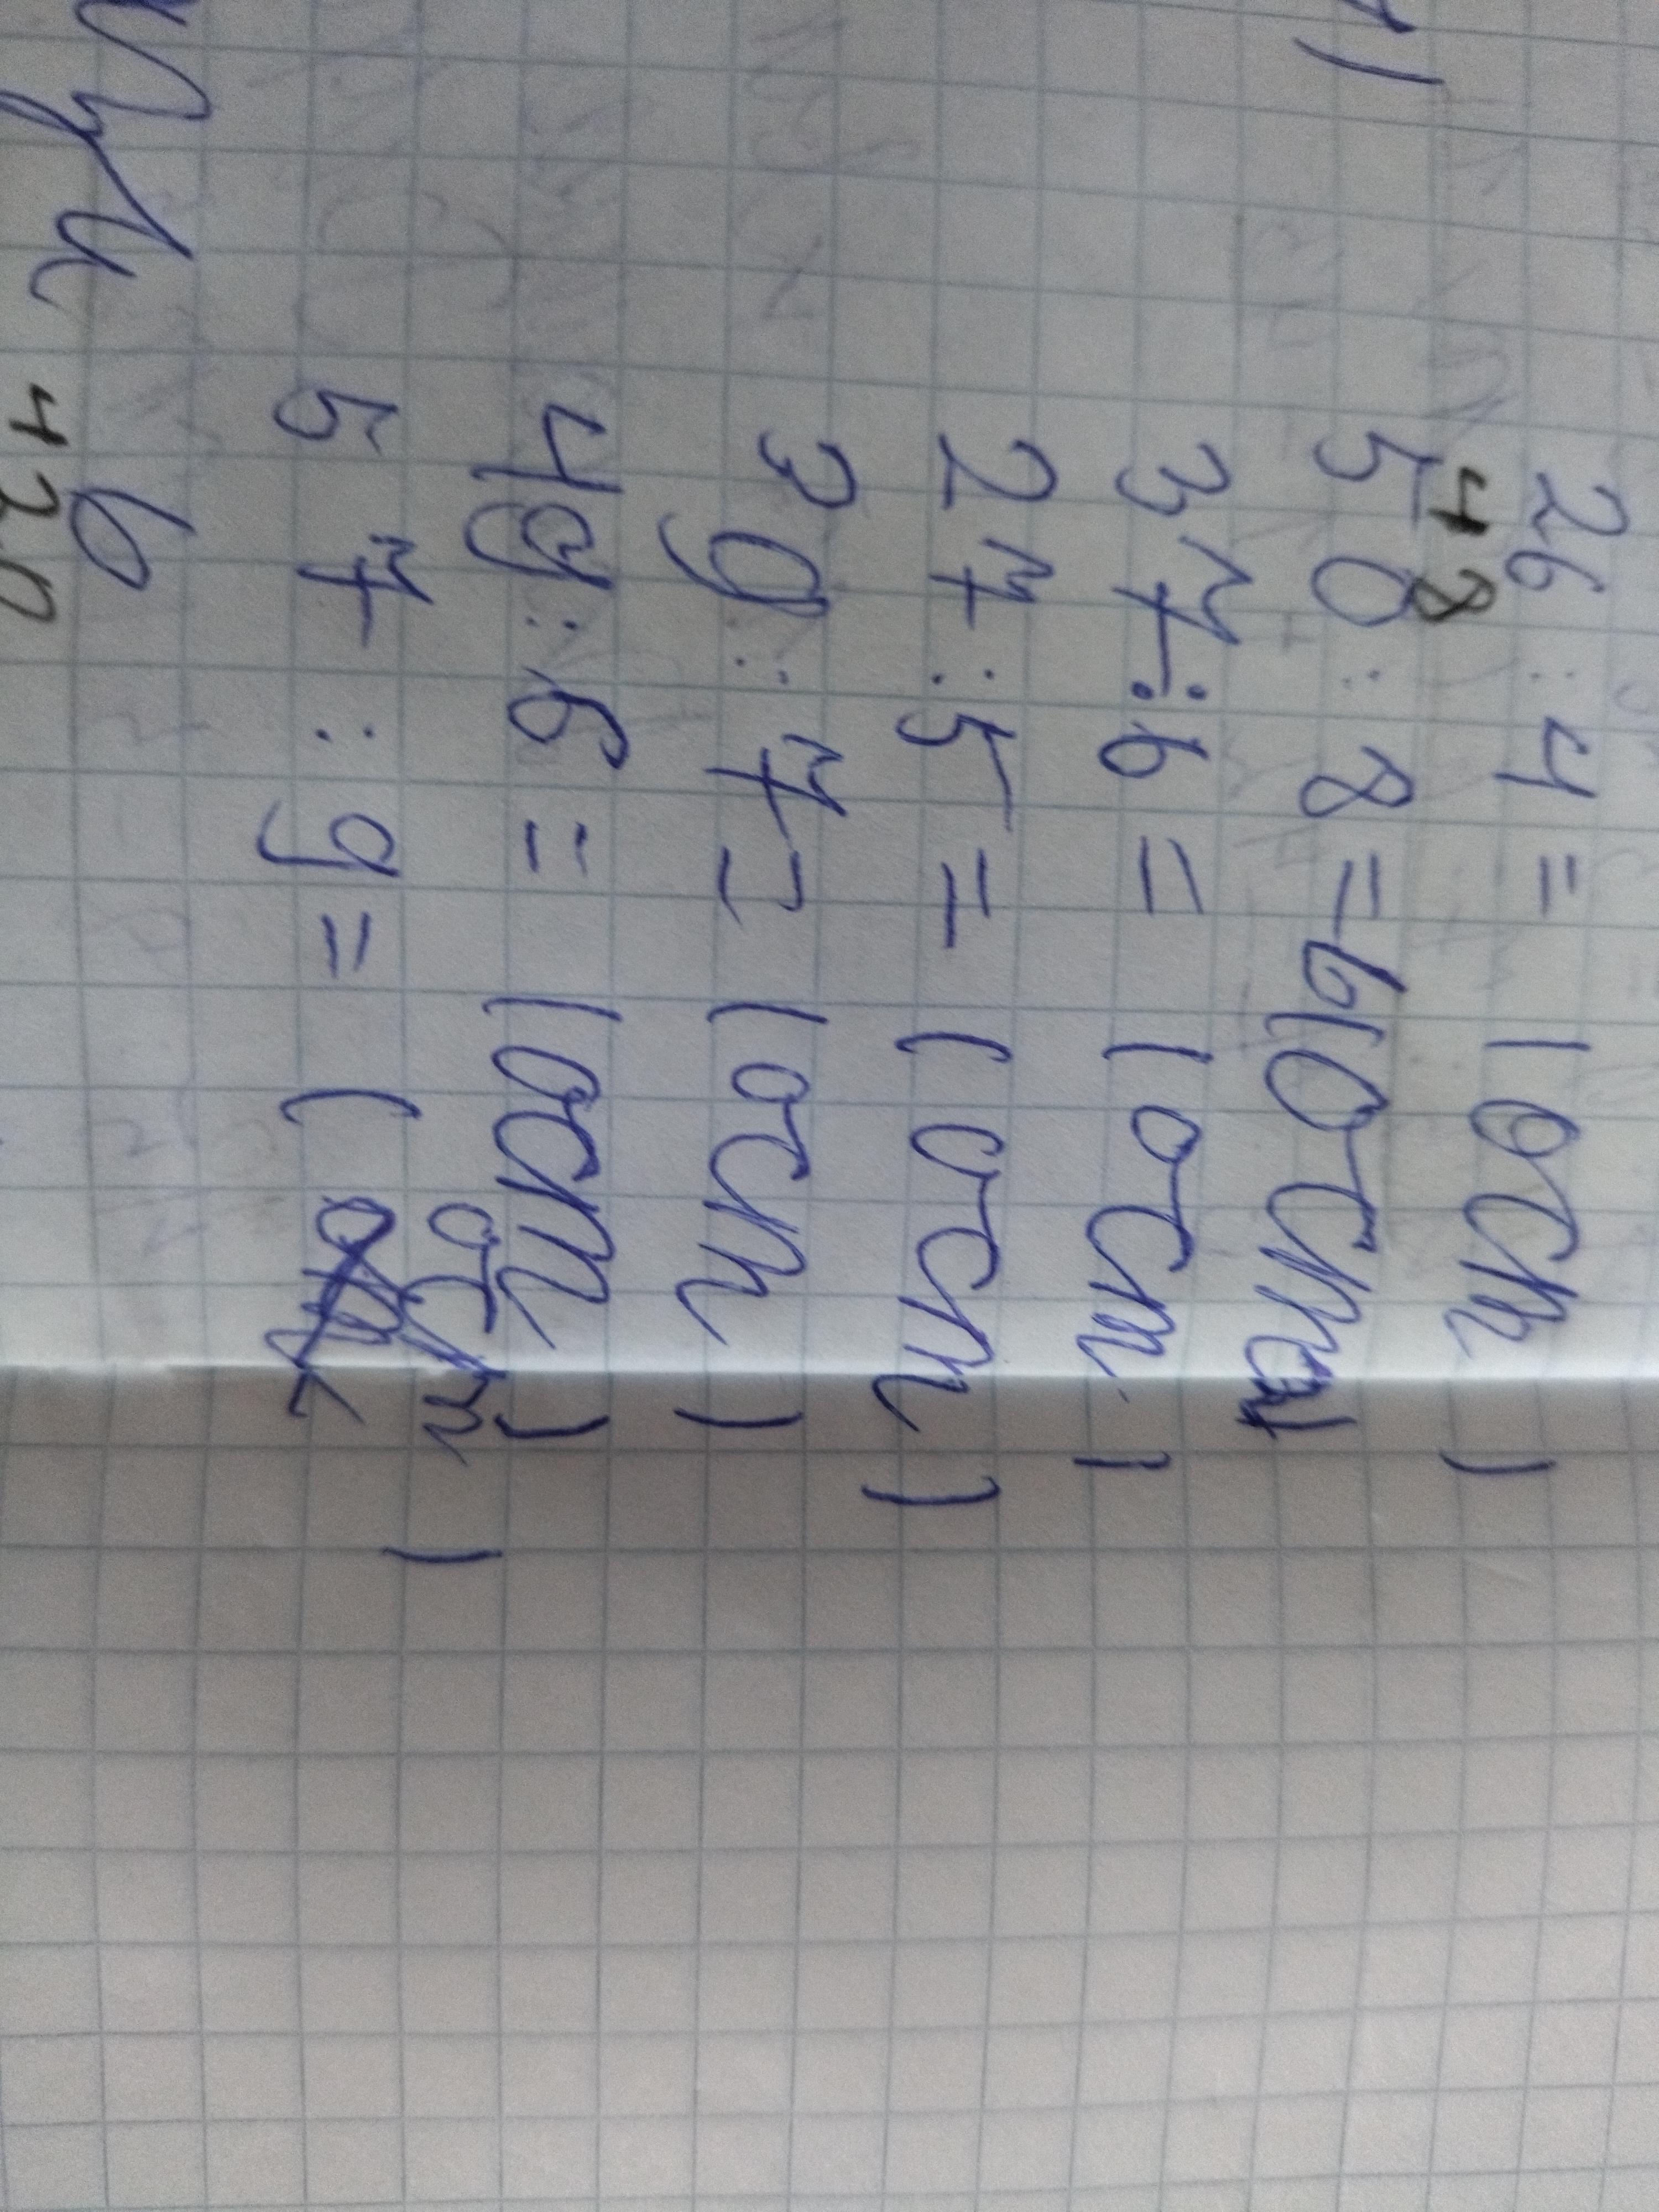 26 : 4 = (ост )
48
50 : 8 = 6(ост
37 : 6 = (ост )
27 : 5 = (ост )
39 : 7 = (ост )
49 : 6 = (ост )
ост )
57 : 9 = (
6